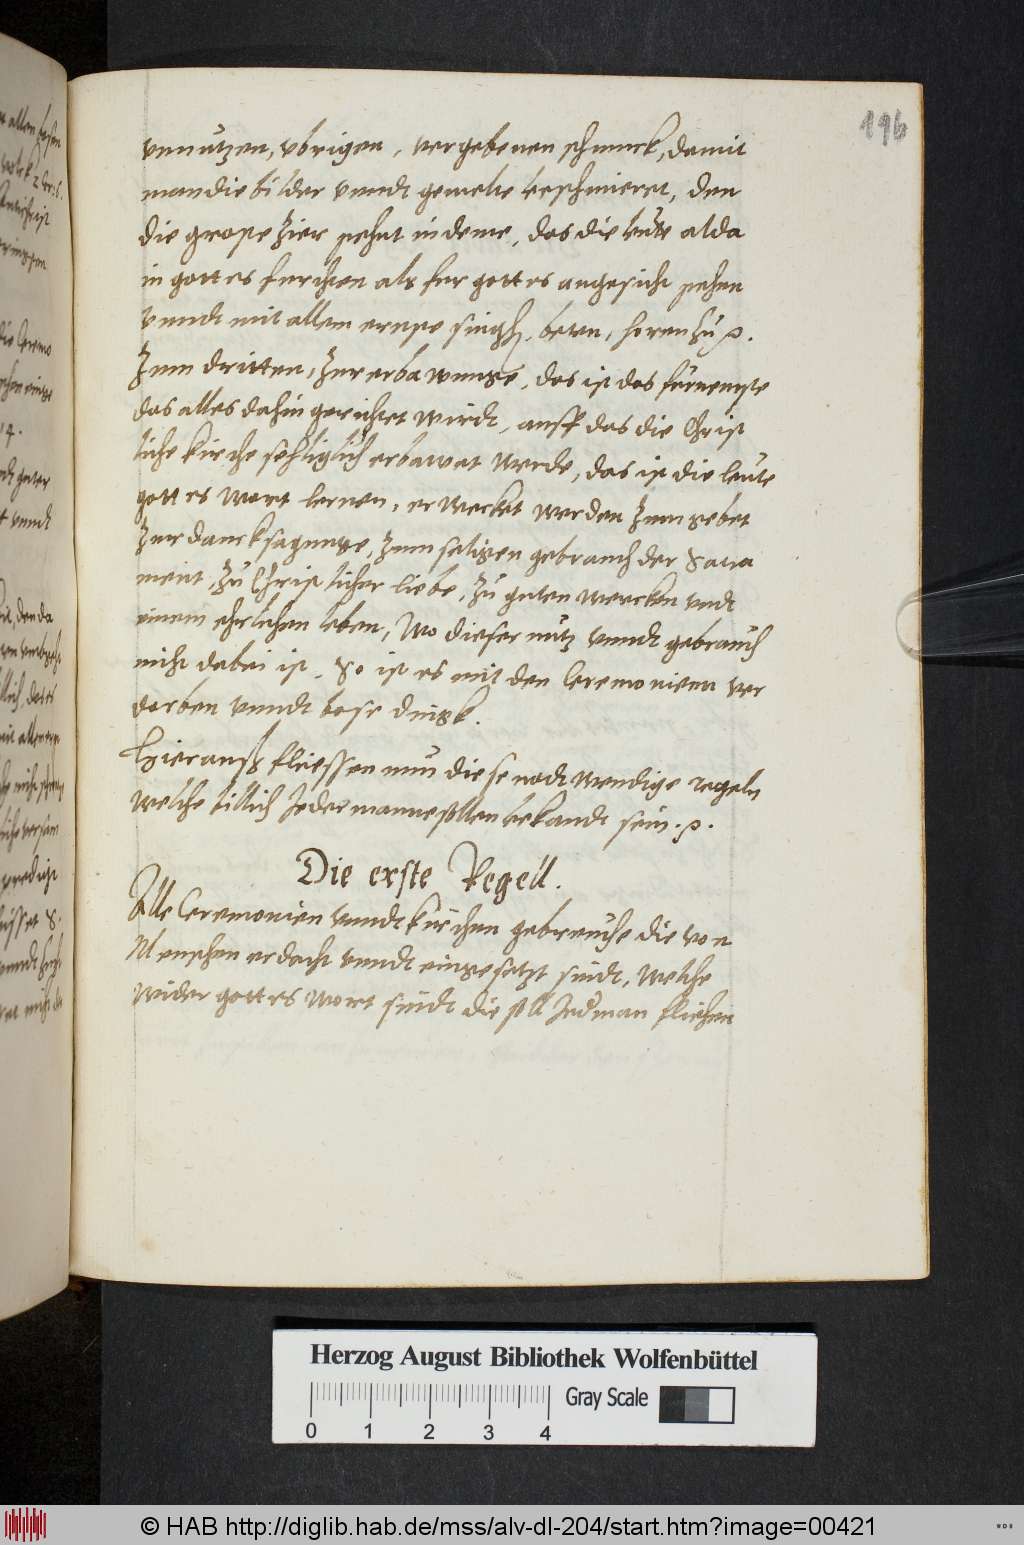 196
vnnützen, vbrigen, vergebenen schmuck, damit
man die bilder vnndt gemelte beschmieret, den
die grose zier stehnt in deme, das die leütte alda
in gottes furchten als fur gottes angesicht stehen
vnndt mit allem ernste singen, beten, horen zü
Zum dritten, zur erbawunge, das ist das fürnemste
das alles dahin gerichtet wirdt, auff das die Christ
liche kirche sehliglich erbawat werde, das ist die leute
gottes wort lernen, erwecket werden zum gebet
zur dancksagunge, zum seligen gebrauch der Sacra
ment, zü Christlicher liebe, zü guten wercken vndt
einem ehrlichen leben, Wo dieser nütz vnndt gebrauch
nicht dabei ist, So ist es mit den Ceremonienn ver
dorben vnndt bose dingk.
Hierauß fliessen nun diese nodtwendige regeln
welche billich Jederman sollen bekandt sein.
Die erste Regell.
Alle Ceremonien vnndt kirchen gebreuche die von
Menschen erdacht vnndt eingesetzt sindt, Welche
wider gottes wort sindt die soll Jederman fliehen
Herzog August Bibliothek Wolfenbüttel
Gray Scale
0 1 2 3 4
© HAB http://diglib.hab.de/mss/alv-dl-204/start.htm?image=00421